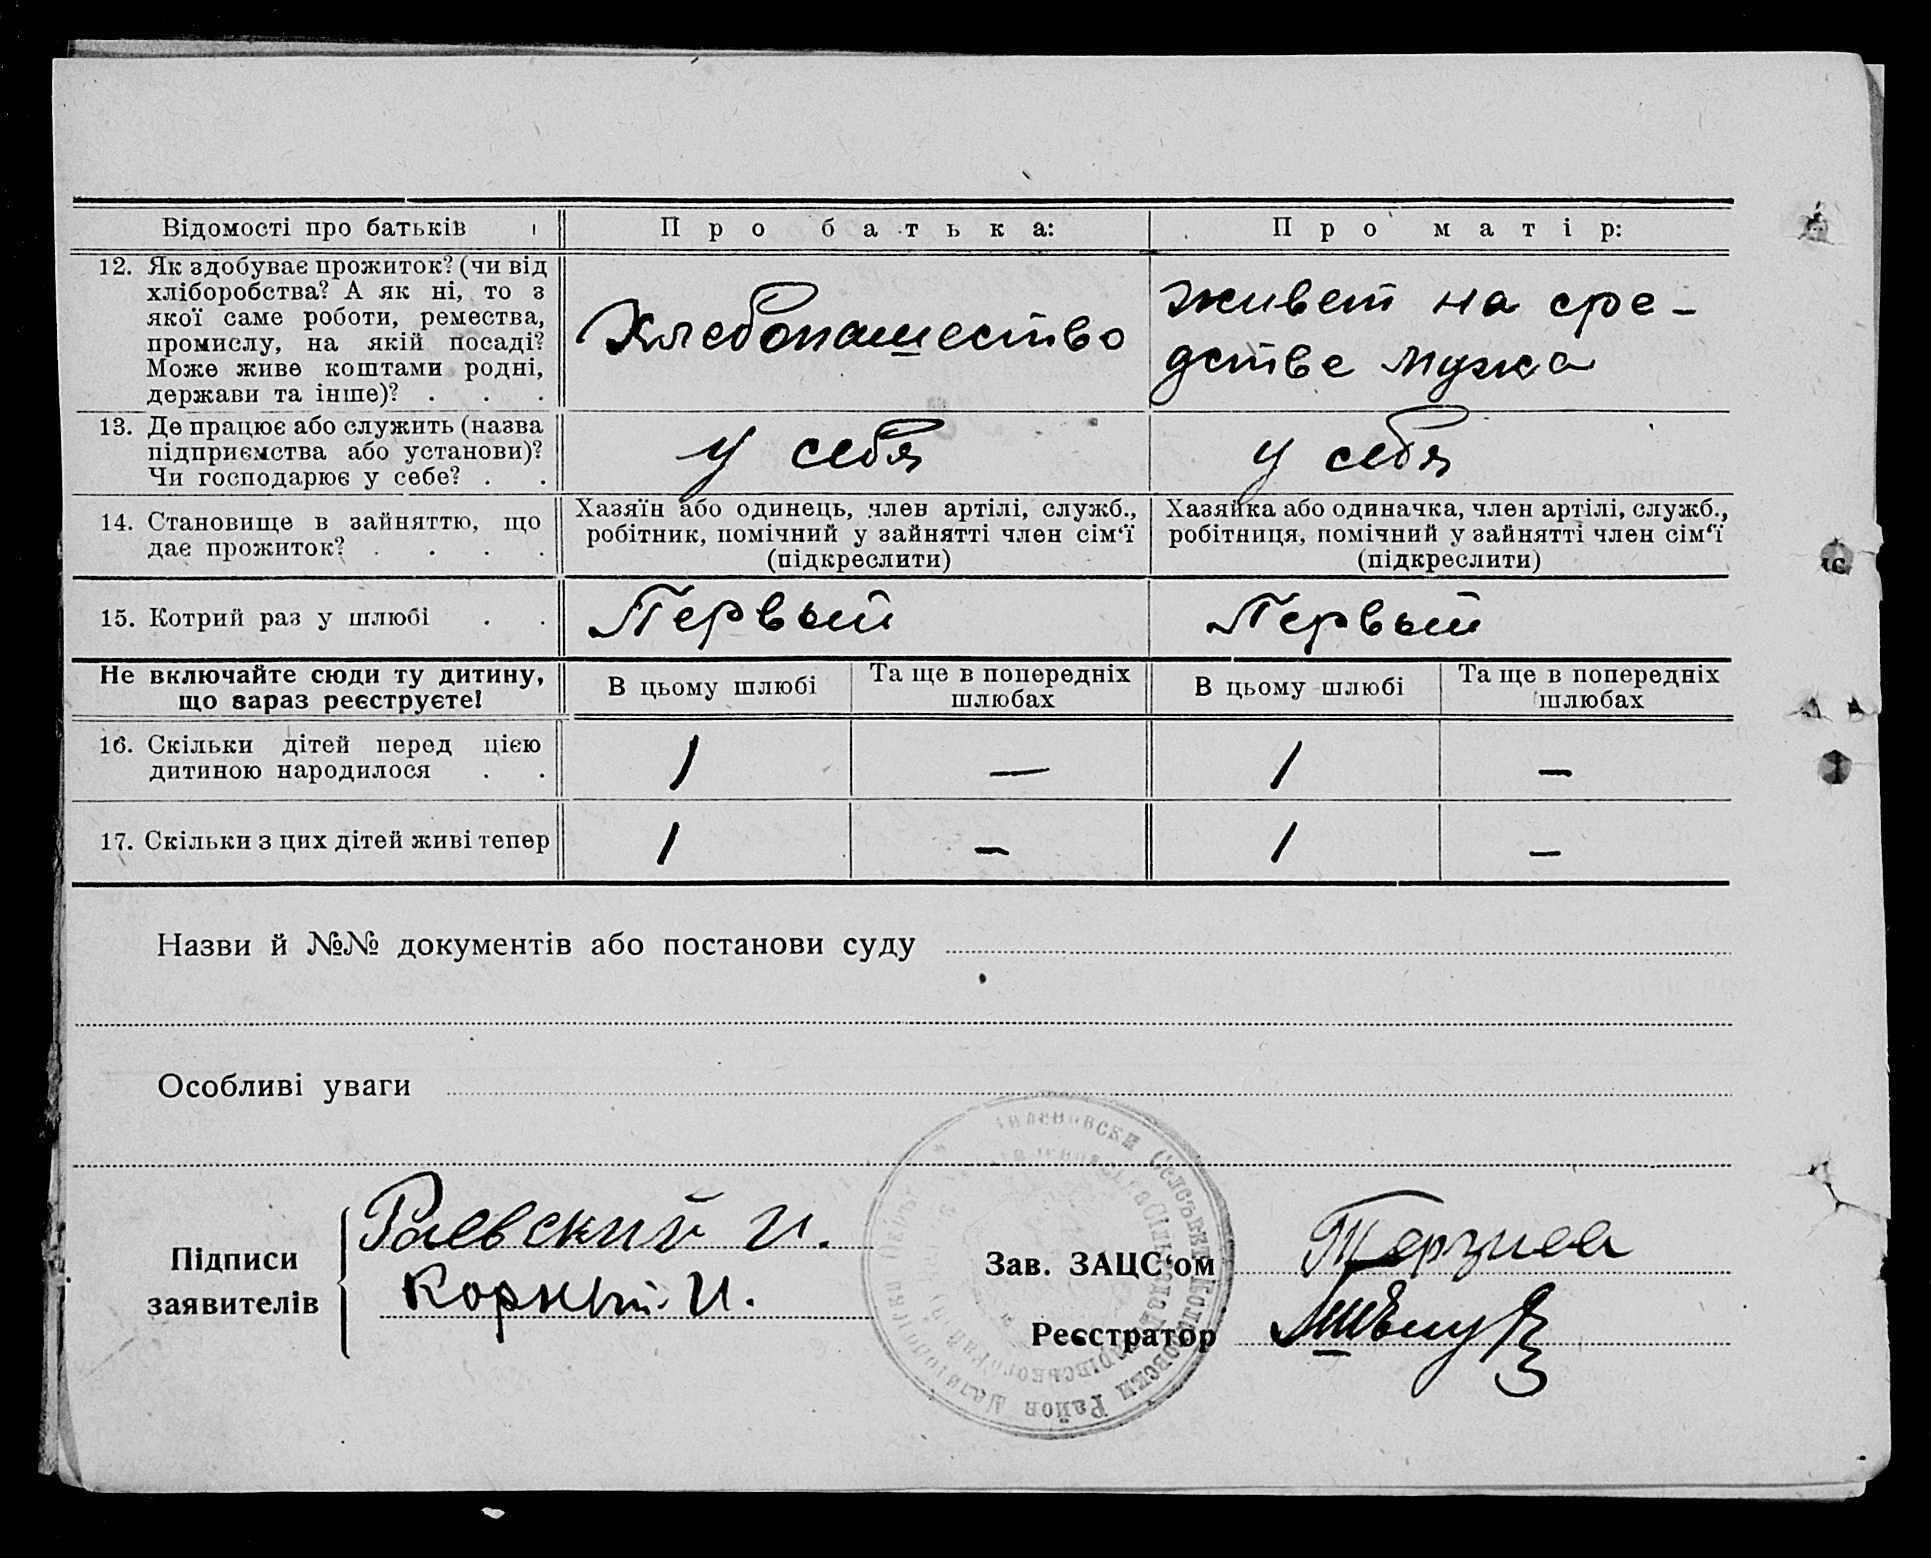 Відомості про батьків
Про батька:
Про матір:
12. Як здобуває прожиток? (чи від
хліборобства? А як ні, то з
якої саме роботи, ремества,
промислу, на якій посаді?
Може живе коштами родні,
держави та інше)? . . .
Хлебопашество
живет на сре-
дстве мужа
13. Де працює або служить (назва
підприємства або установи)?
Чи господарює у себе? . .
у себя
у себя
14. Становище в зайняттю, що
дає прожиток? . . . .
Хазяїн або одинець, член артілі, служб.,
робітник, помічний у зайнятті член сім'ї
(підкреслити)
Хазяйка або одиначка, член артілі, служб.,
робітниця, помічний у зайнятті член сім'ї
(підкреслити)
15. Котрий раз у шлюбі . .
Первый
Первый
Не включайте сюди ту дитину,
що зараз реєструєте!
В цьому шлюбі
Та ще в попередніх
шлюбах
В цьому шлюбі
Та ще в попередніх
шлюбах
16. Скільки дітей перед цією
дитиною народилося . .
1
—
1
—
17. Скільки з цих дітей живі тепер
1
—
1
—
Назви й №№ документів або постанови суду
Особливі уваги
Підписи
заявителів
Раевский И.
Корный И.
Зав. ЗАЦС'ом
Реєстратор
Сельсьвет
Район